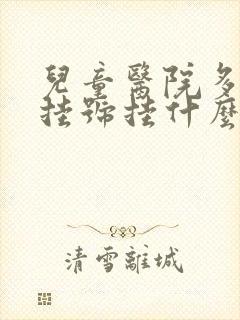 兒童醫院多
掛號掛什麼
清雪離城